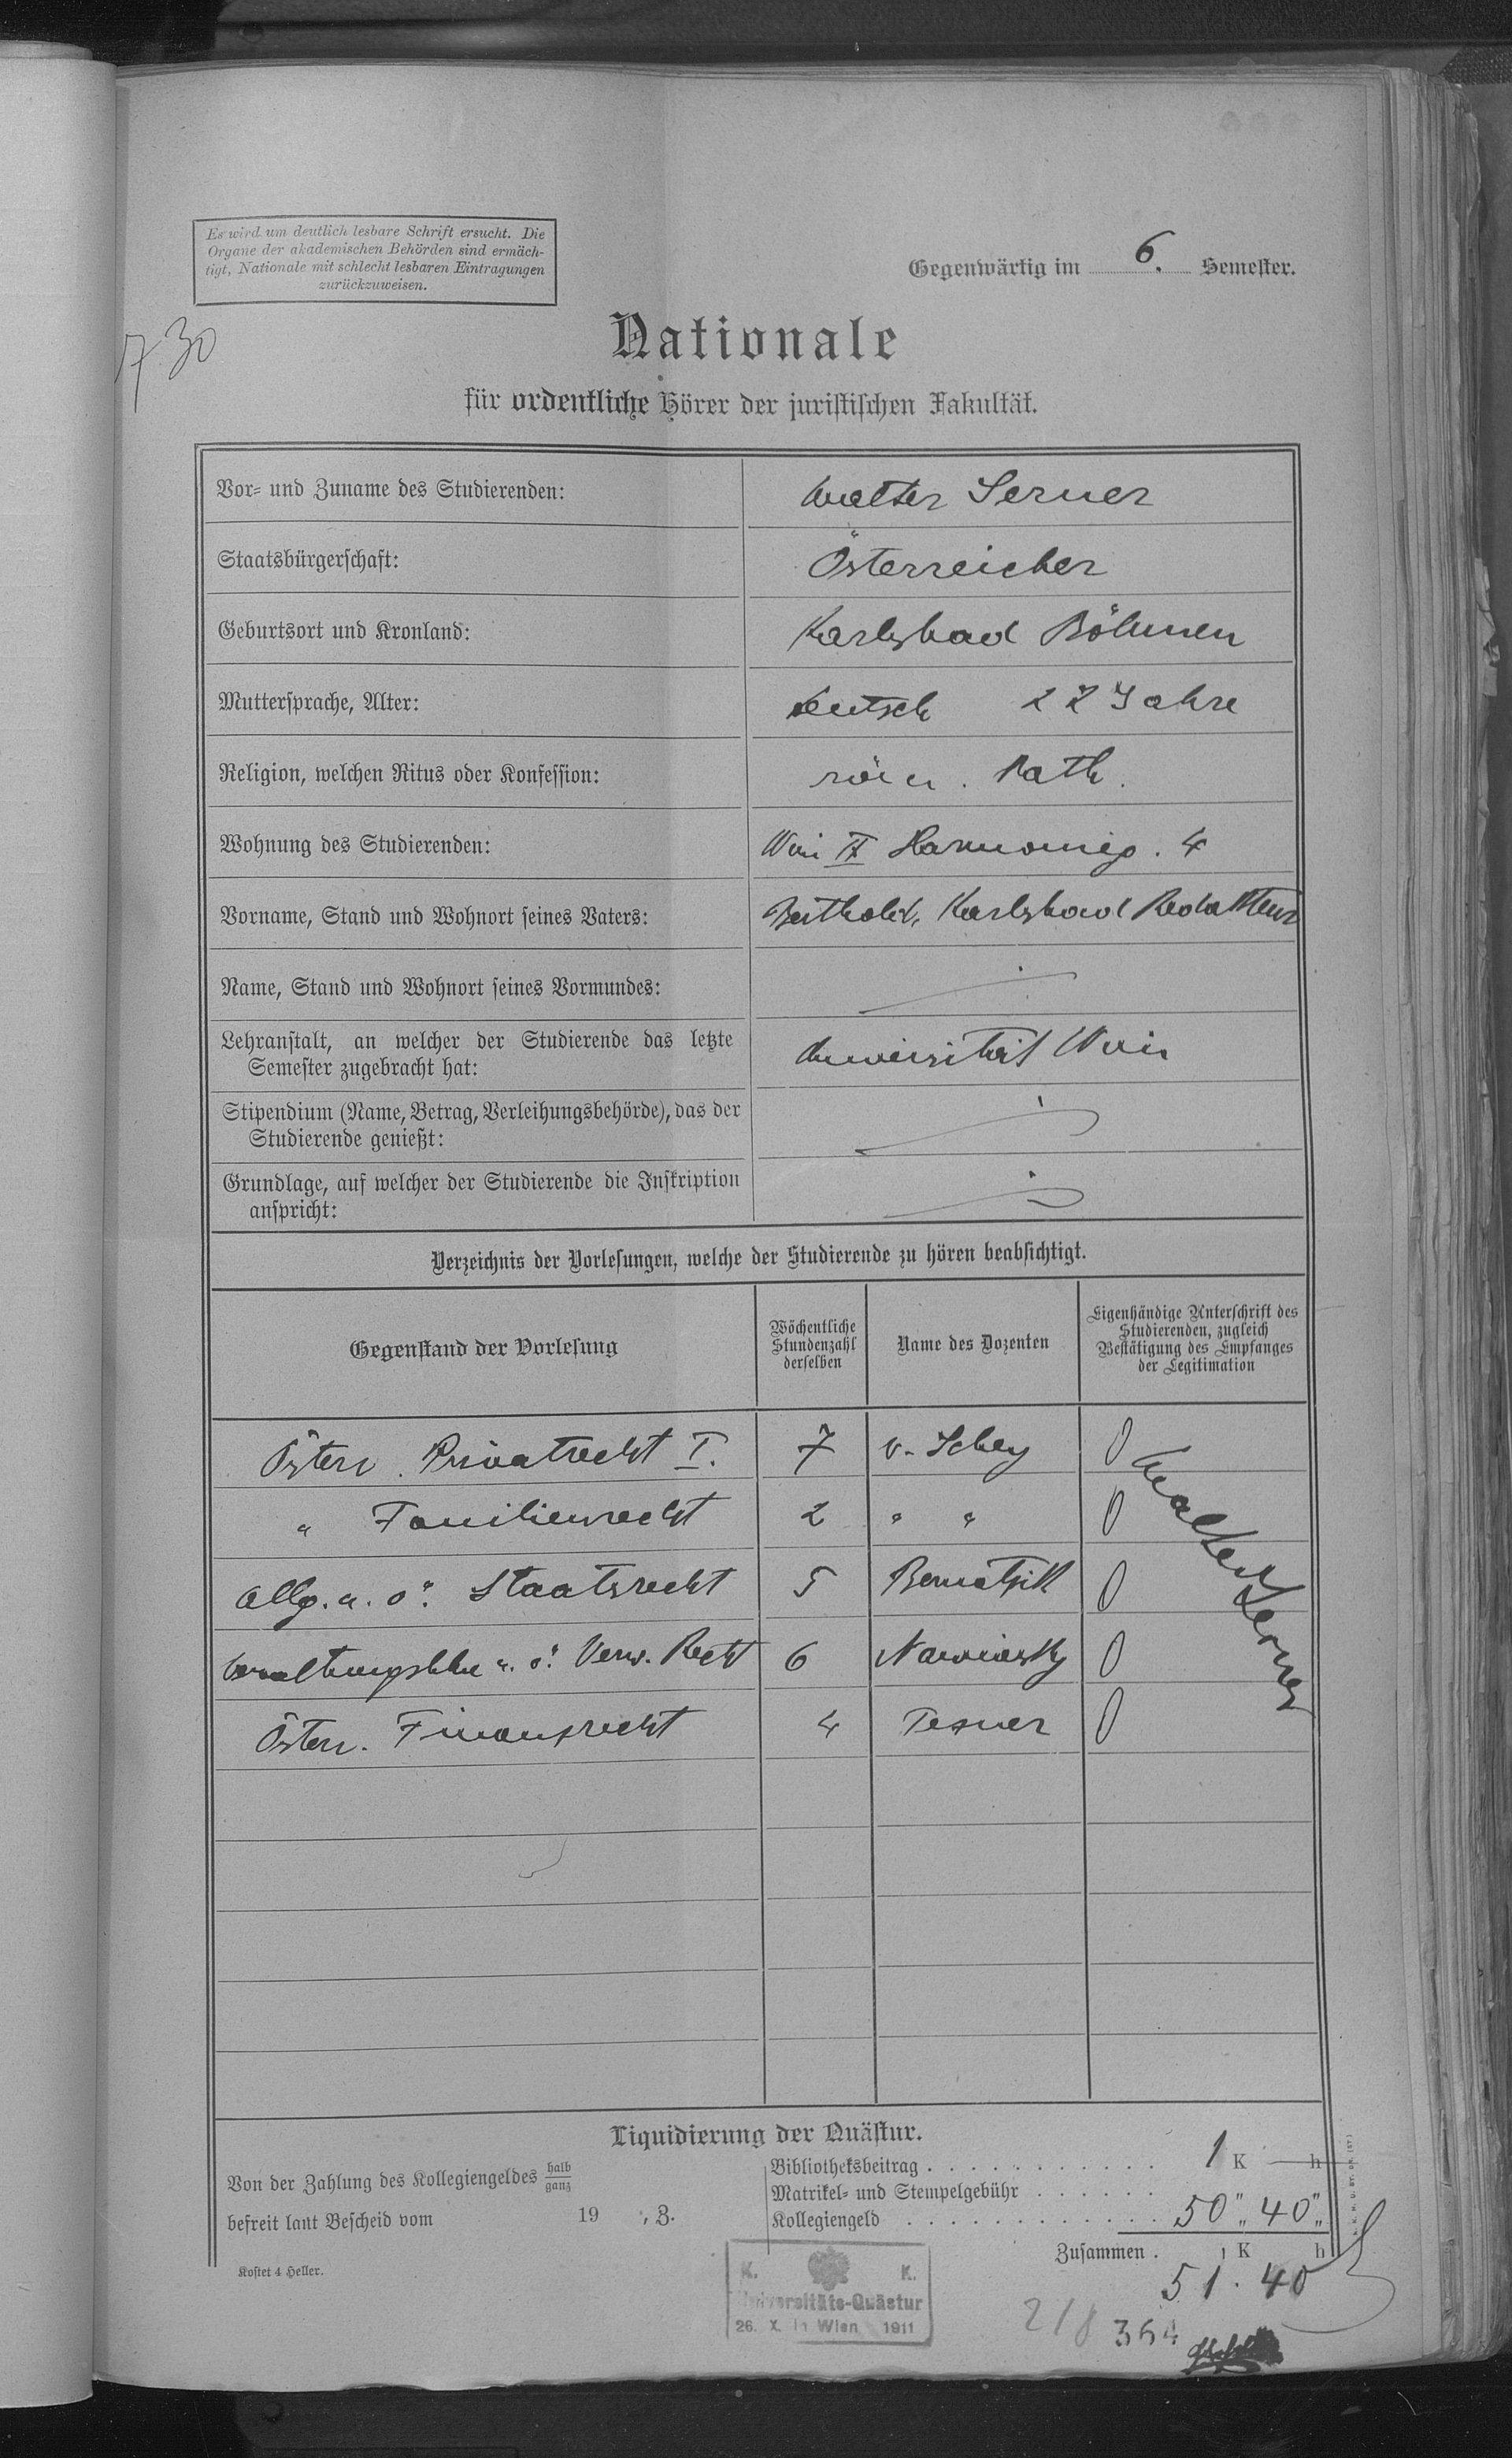 Es wird um deutlich lesbare Schrift ersucht. Die
Organe der akademischen Behörden sind ermäch-
tigt, Nationale mit schlecht lesbaren Eintragungen
zurückzuweisen.
Gegenwärtig im 6. Semester.
730
Nationale
für ordentliche Hörer der juristischen Fakultät.
Vor- und Zuname des Studierenden: Walter Serner
Staatsbürgerschaft: Österreicher
Geburtsort und Kronland: Karlsbad Böhmen
Muttersprache, Alter: deutsch 22 Jahre
Religion, welchen Ritus oder Konfession: röm. Kath.
Wohnung des Studierenden: Wien IX Harmonieg. 4
Vorname, Stand und Wohnort seines Vaters: Berthold, Karlsbad Redakteur
Name, Stand und Wohnort seines Vormundes:
Lehranstalt, an welcher der Studierende das letzte
Semester zugebracht hat: Universität Wien
Stipendium (Name, Betrag, Verleihungsbehörde), das der
Studierende genießt:
Grundlage, auf welcher der Studierende die Inskription
anspricht:
Verzeichnis der Vorlesungen, welche der Studierende zu hören beabsichtigt.
Gegenstand der Vorlesung
Wöchentliche
Stundenzahl
derselben
Name des Dozenten
Eigenhändige Unterschrift des
Studierenden, zugleich
Bestätigung des Empfanges
der Legitimation
Österr. Privatrecht I. 7 v. Schey 0
" Familienrecht 2 " " 0
Allg. u. ö. Staatsrecht 5 Bernatzik 0
Verwaltungslehre u. ö. Verw. Recht 6 Nawiasky 0
Österr. Finanzrecht 4 Tezner 0
Walter Serner
Liquidierung der Quästur.
Von der Zahlung des Kollegiengeldes halb
ganz
befreit laut Bescheid vom 19 , 3.
Bibliotheksbeitrag . . . . . . . . . . . 1 K — h
Matrikel- und Stempelgebühr . . . . . .
Kollegiengeld . . . . . . . . . . . . 50 " 40 "
Zusammen . K h
51. 40
Kostet 4 Heller.
K. K.
Universitäts-Quästur
26. X. in Wien 1911
218 364